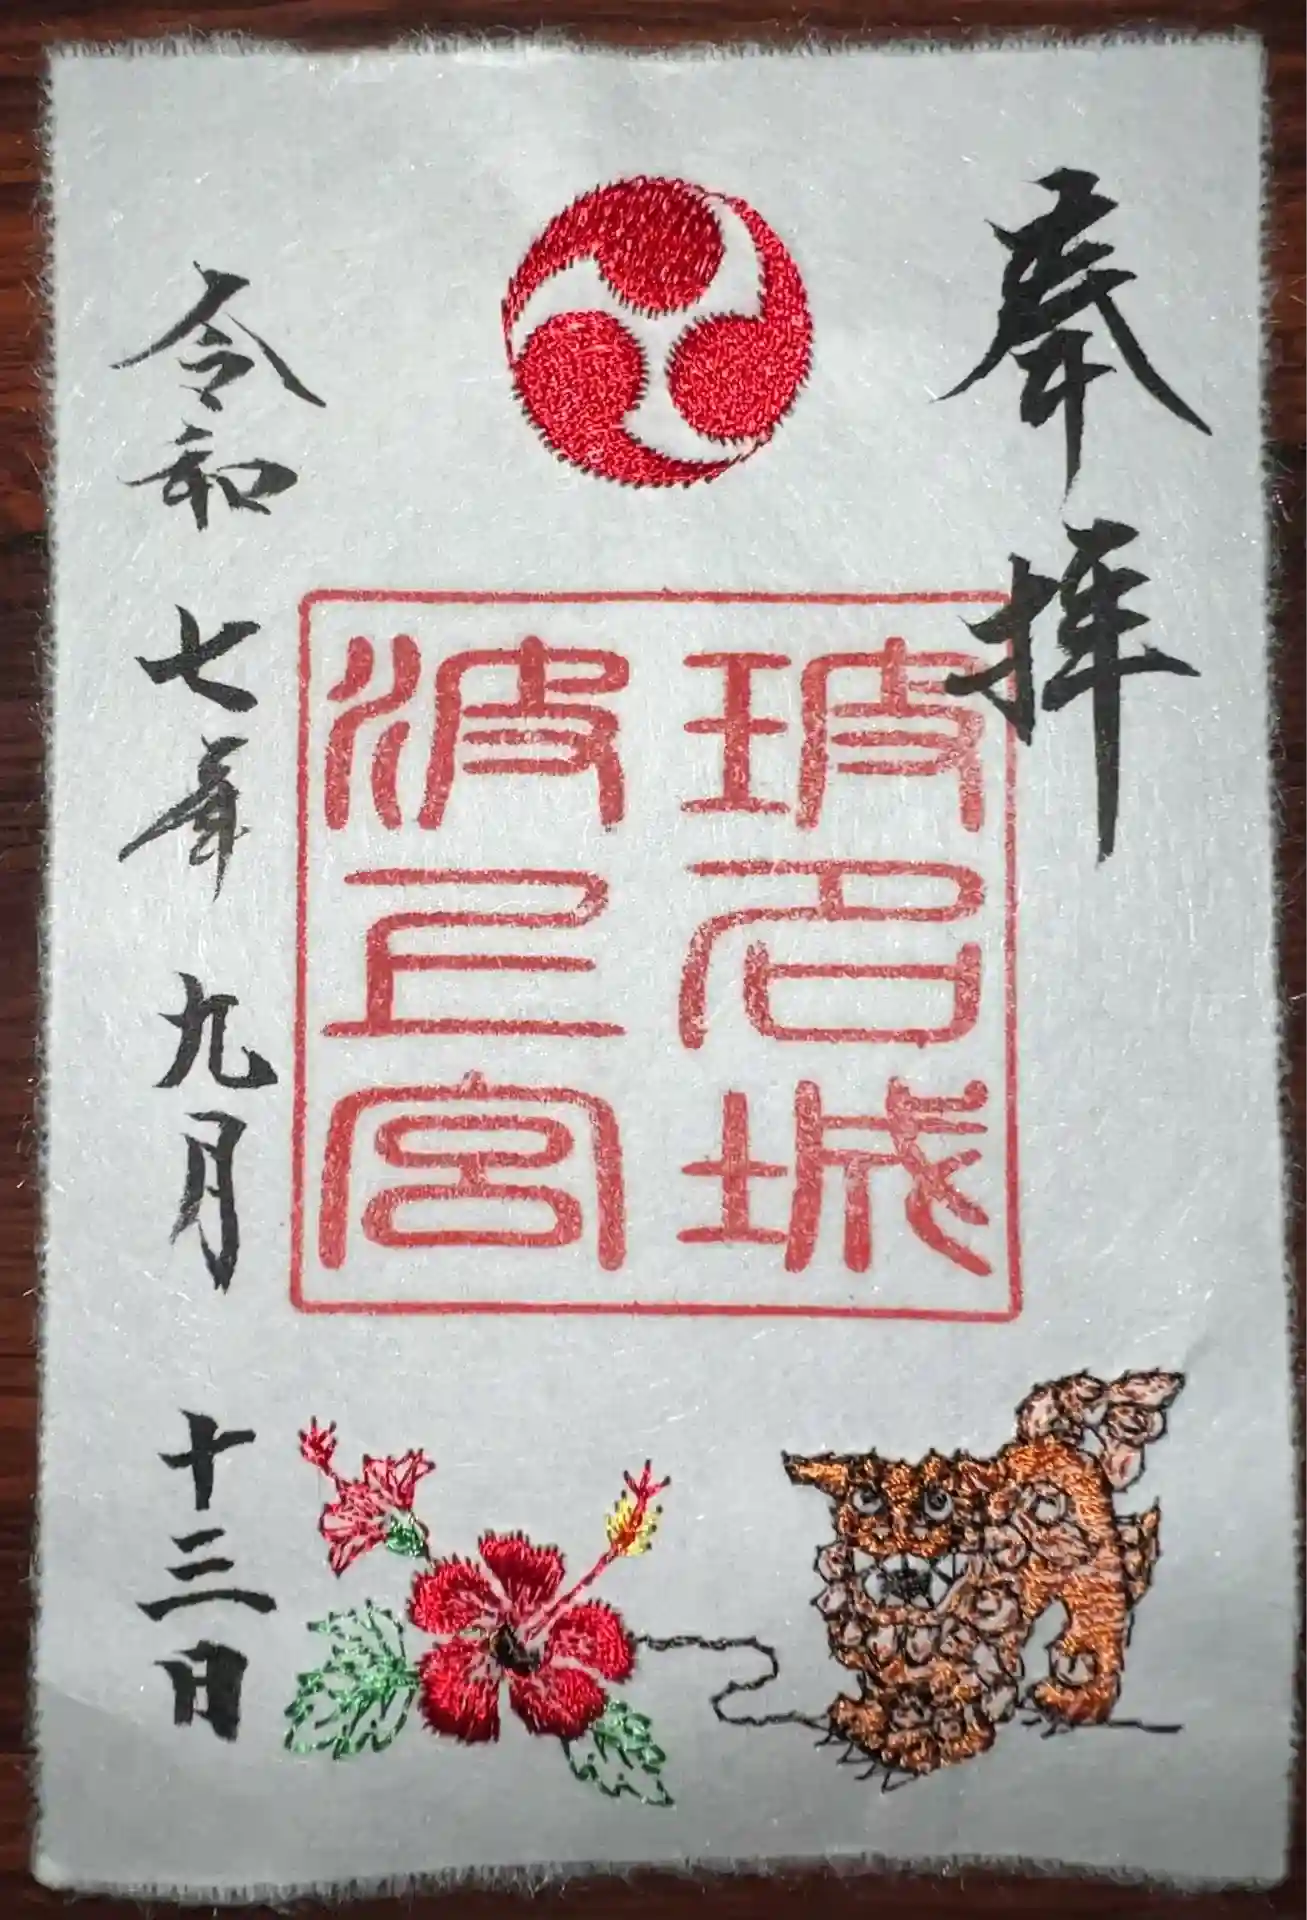 奉拝
玻名城
波上宮
令和七年九月十三日